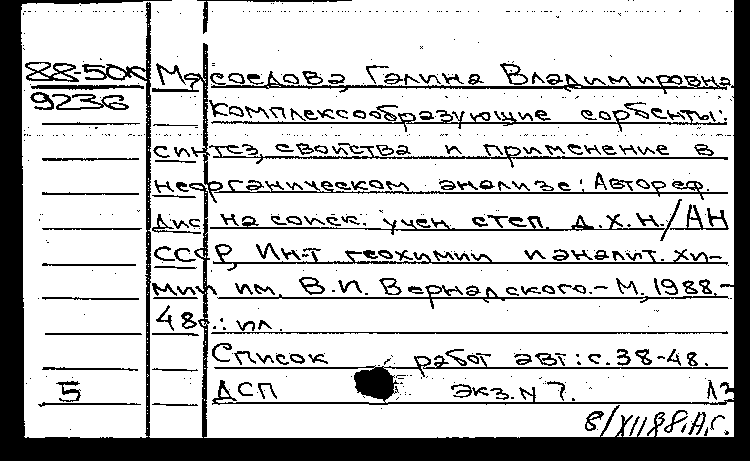 88-50К Мясоедова, Галина Владимировна
9236 Комплексообразующие сорбенты:
синтез, свойства и применение в
неорганическом анализе: Автореф.
дис. на соиск. учен. степ. д.х.н./АН
СССР, Ин-т геохимии и аналит. хи-
мии им. В.И. Вернадского.- М., 1988.-
48с.: ил.
Список работ авт: с.38-48.
5 ДСП экз. N 7.
8/XII 88. А.Г.